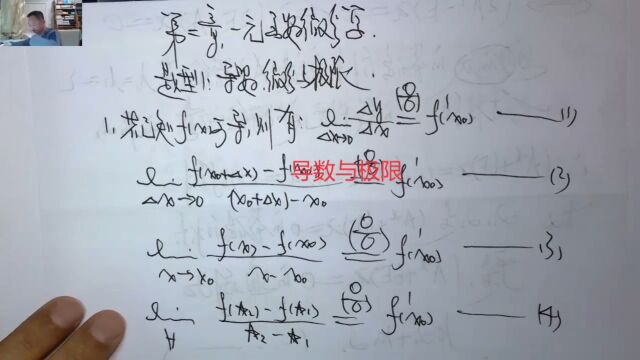 第二章,一元函数微分学.
题型1:导数,微分与极限.
1,若已知f(x)可导,则有: lim Δx→0 Δy/Δx (0/0)= f'(x0) —— (1)
lim Δx→0 f(x0+Δx)-f(x0)/(x0+Δx)-x0 = f'(x0) —— (2)
导数与极限
lim x→x0 f(x)-f(x0)/x-x0 (0/0)= f'(x0) —— (3)
lim f(☆2)-f(☆1)/☆2-☆1 (0/0)= f'(x0) —— (4)